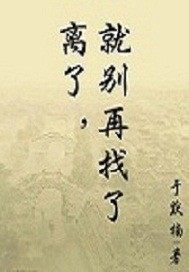 离了，
就别再找了
于 著